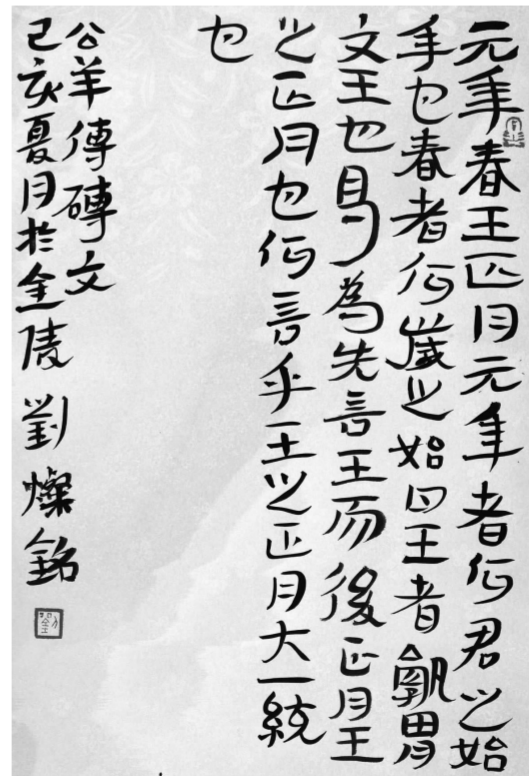 元年春王正月元年者何君之始
年也春者何歲之始也王者孰胃
文王也曷為先言王而後正月王
之正月也何言乎王之正月大一統
也
公羊傳磚文
己亥夏月於金陵 劉燦銘